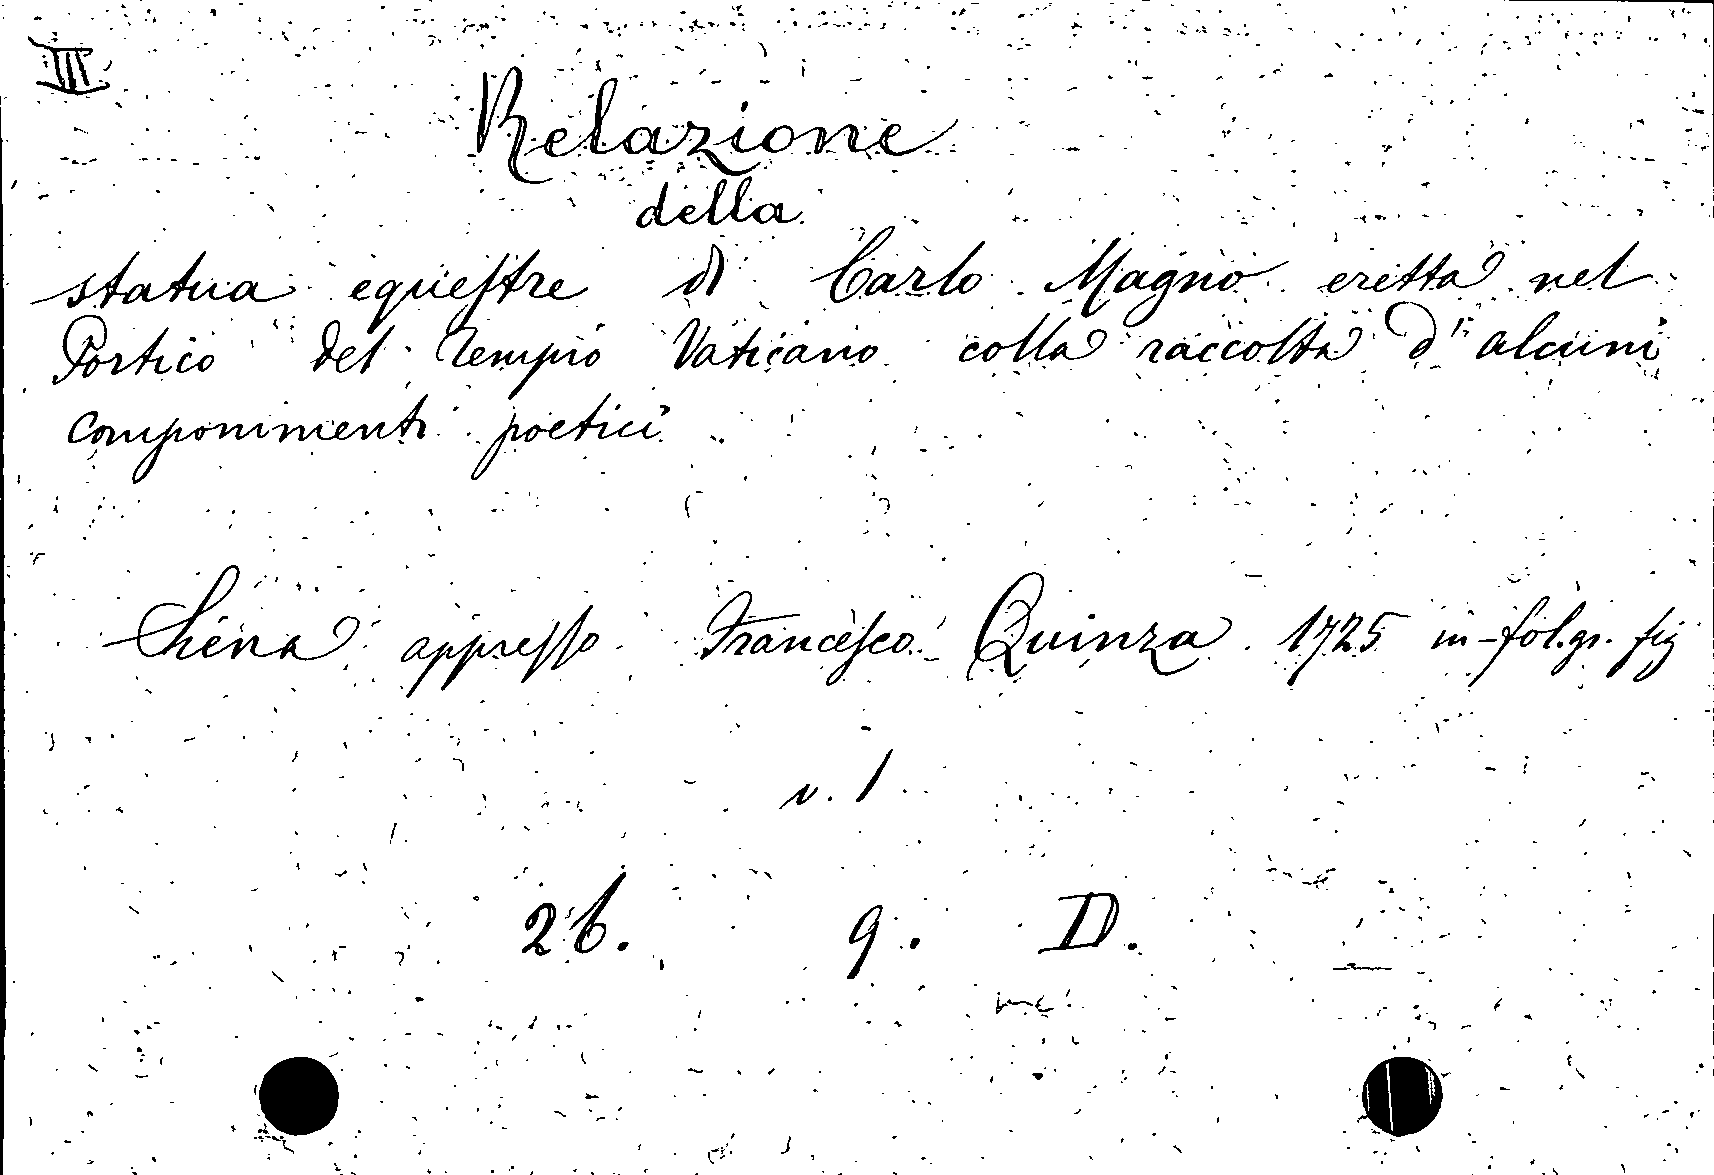 III
Relazione
della
statua equestre di Carlo Magno eretta nel
Portico del Tempio Vaticano colla raccolta d'alcuni
componimenti poetici
Siena appresso Francesco Quinza 1725 in-fol.gr. fig
v. 1
26. 9. D.